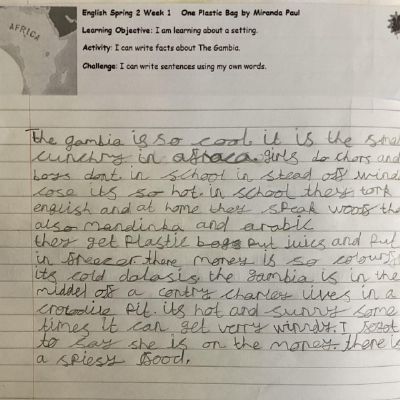 AFRICA
English Spring 2 Week 1 One Plastic Bag by Miranda Paul
Learning Objective: I am learning about a setting.
Activity: I can write facts about The Gambia.
Challenge: I can write sentences using my own words.
The gambia is so cool it is the smal
cunchry in afraca. girls do chors and
boys dont in school in stead of wind
cose its so hot. in school they tork
english and at home they speak woofs the
also mandinka and arabic
they get plastic bags put juics and put
in freecer there money is so colourf
its cold dalasis the gambia is in the
middel of a contry charley lives in a
crocodise pit. its hot and sunny some
times it can get verry windy. I forgot
to say she is on the money. there is
a spiesy food.